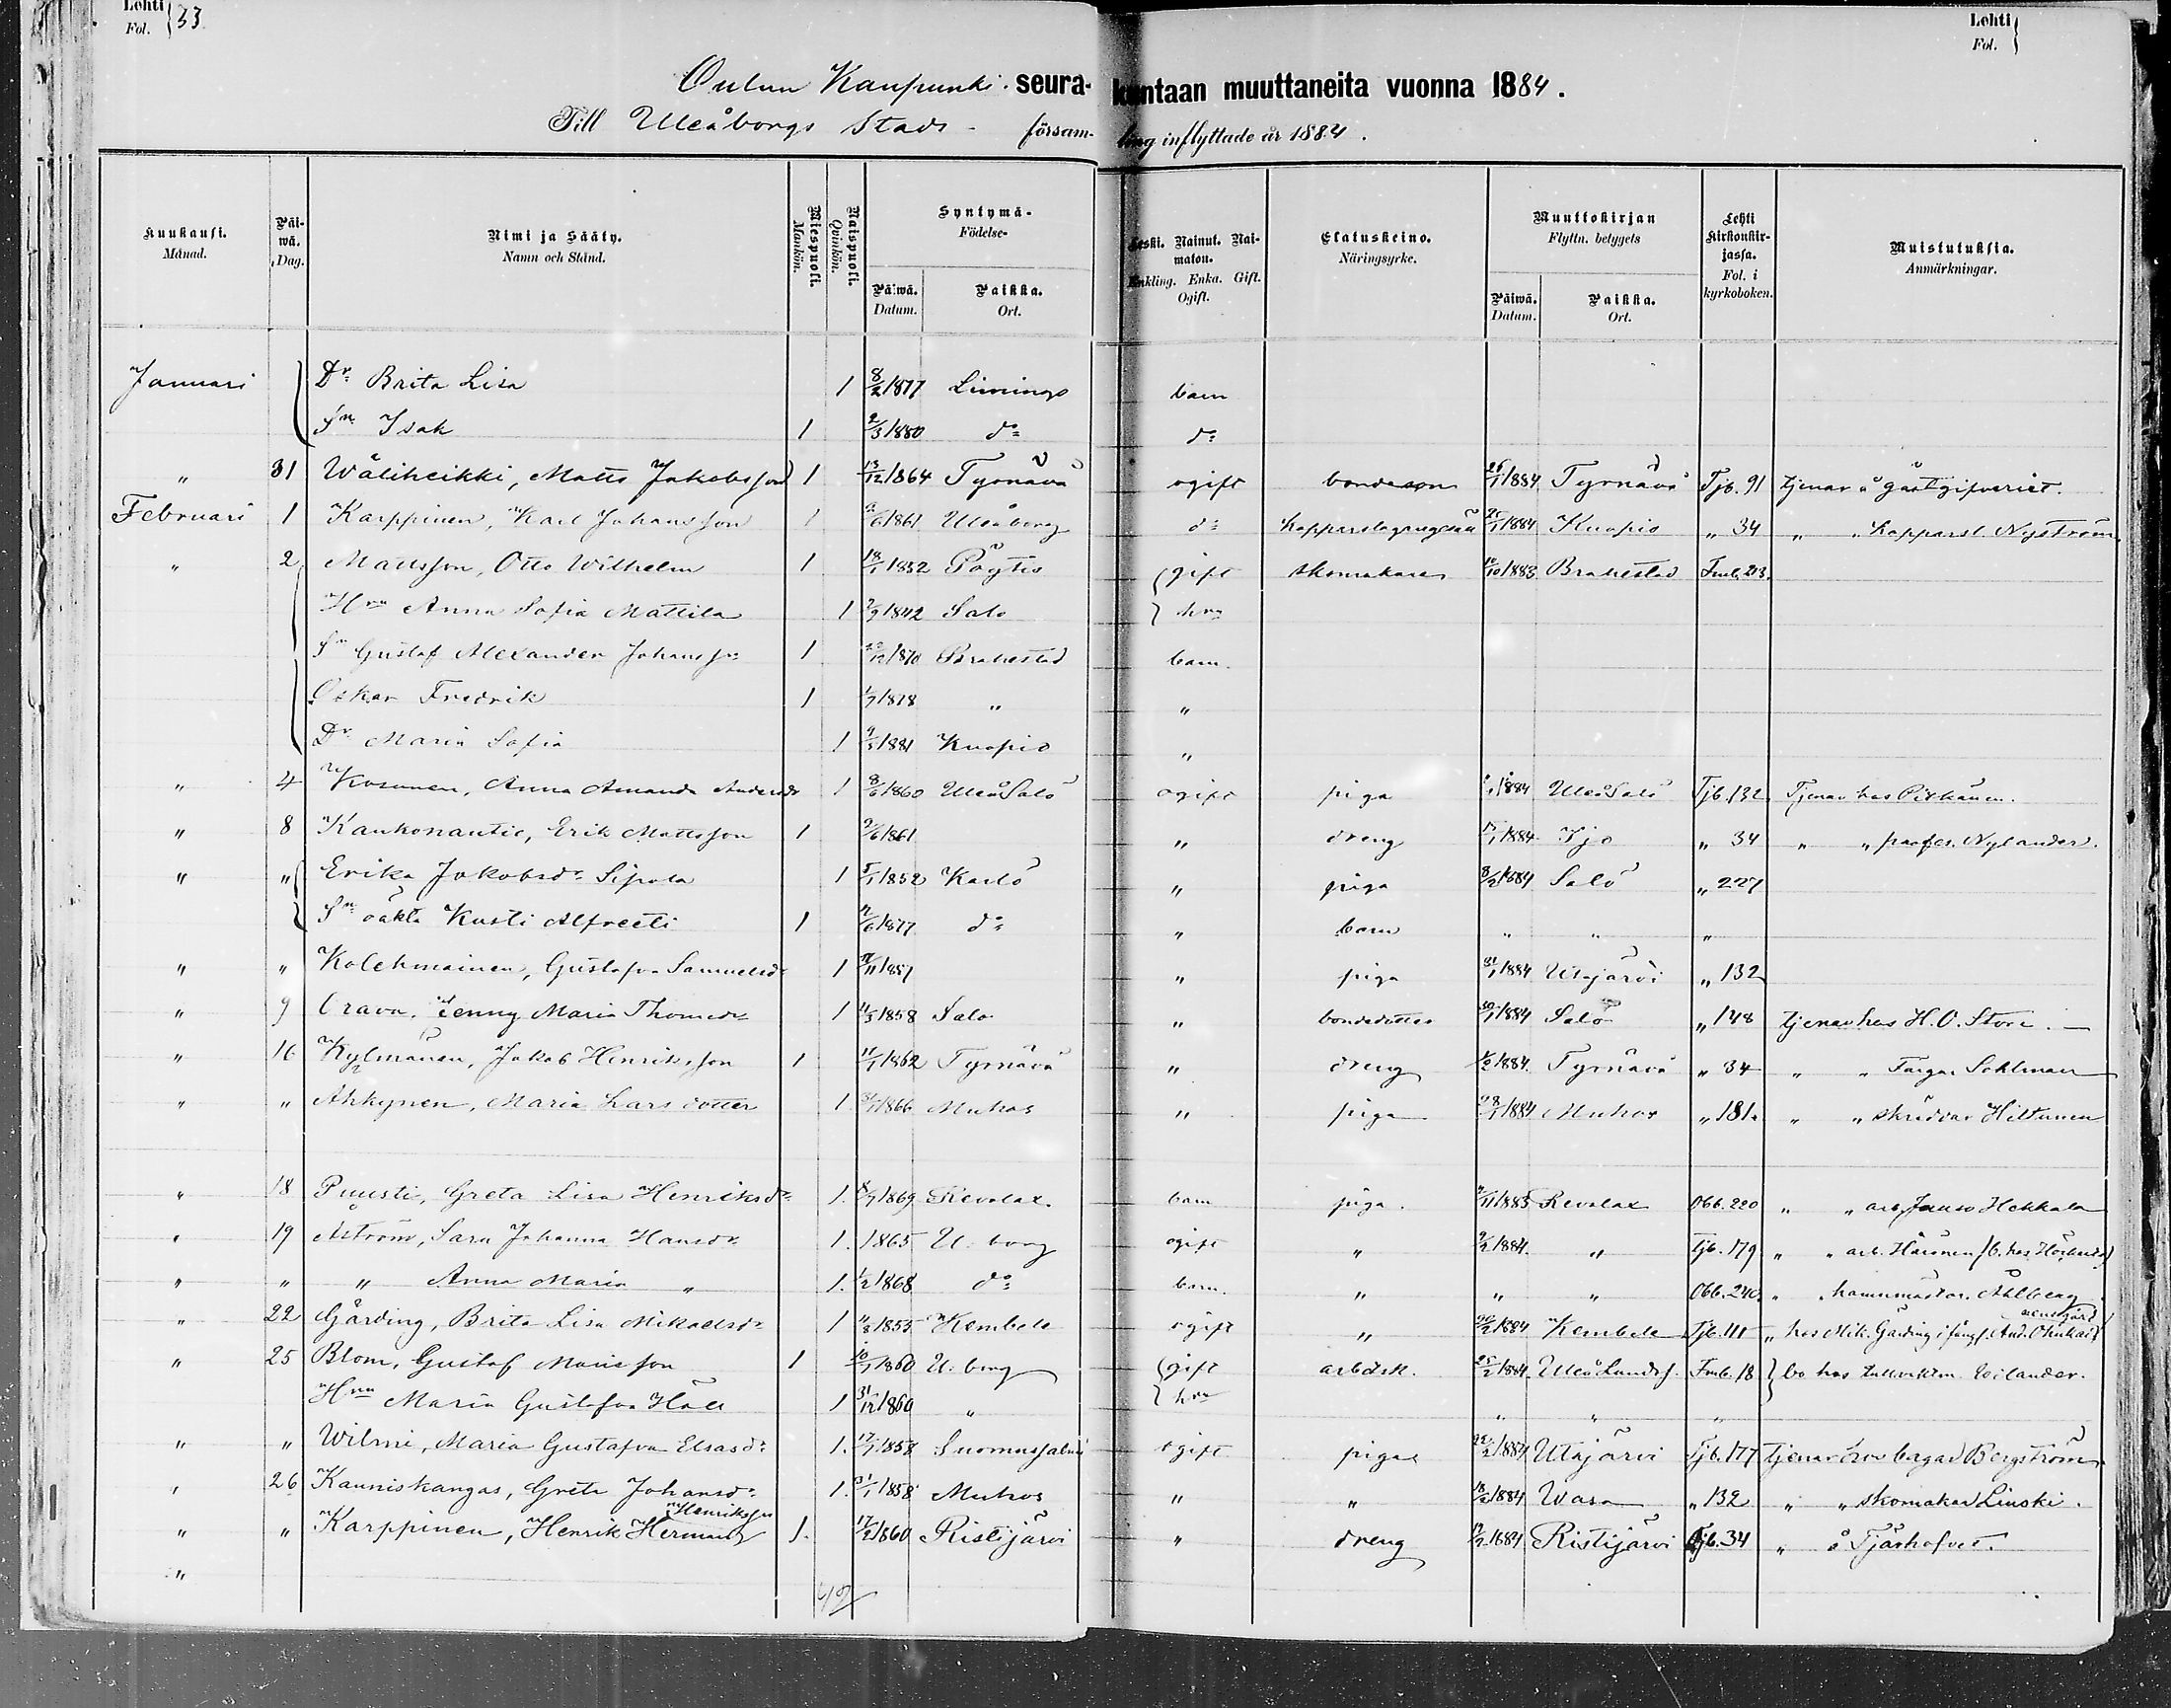 Lehti
Fol. 33.
Lehti
Fol.
Oulun Kaupunki seurakuntaan muuttaneita vuonna 1884.
Till Uleåborgs Stads församling inflyttade år 1884.
Kuukausi. Månad. | Päiwä. Dag. | Nimi ja Sääty. Namn och Stånd. | Miespuoli. Mankön. | Naispuoli. Qvinkön. | Syntymä- Födelse- Päiwä. Datum. | Paikka. Ort. | Leski. Nainut. Naimaton. Enkling. Enka. Gift. Ogift. | Elatuskeino. Näringsyrke. | Muuttokirjan Flyttn. betygets Päiwä. Datum. | Paikka. Ort. | Lehti kirkonkirjassa. Fol. i kyrkoboken. | Muistutuksia. Anmärkningar.
Januari Dr Brita Lisa 1 8/2 1877 Limingo barn
Sn Isak 1 2/3 1880 do do
" 31 Wäliheikki, Matts Jakobsson 1 13/12 1864 Tyrnävä ogift bondeson 26/1 1884 Tyrnävä Tjb. 91 tjenar å gästgifveriet.
Februari 1 Karppinen, Karl Johansson 1 1861 Uleåborg do 1884 Kuopio " 34 " " kopparsl. Nyström
" 2 Mattsson, Otto Wilhelm 1 18/1 1852 Pöytis gift skomakare 1883 Brahestad Fmb. 213.
Hru Anna Sofia Mattila 1 1842 Salo hru
Sn Gustaf Alexander Johanss: 1 1870 Brahestad barn.
Oskar Fredrik 1 1/7 1878 " "
Dr Maria Sofia 1 1881 Kuopio "
" 4 Kosunen, Anna Amanda Andersdr 1 8/6 1860 UleåSalo ogift piga 1884 UleåSalo Tjb. 132 Tjenar hos Pitkänen.
" 8 Kaukonautio, Erik Mattsson 1 9/6 1861 " dreng 1884 Ijo " 34 " " profes. Nylander.
" " Erika Jakobsdr Sipola 1 5/1 1852 Karlö " piga 8/2 1884 Salo " 227
Sn oäkta Kusti Alfreeti 1 1877 do " barn " " "
" " Kolehmainen, Gustafva Samuelsdr 1 1857 " piga 31/1 1884 Utajärvi " 132
" 9 Orava, Jenny Maria Thomasdr 1 4/3 1858 Salo " bondedotter 30/1 1884 Salo " 148 tjenar hos H. O. Store.
" 16 Kylmänen, Jakob Henriksson 1 11/1 1862 Tyrnävä " dreng 1884 Tyrnävä " 34 " " Färgar Sohlman
" " Ahkynen, Maria Lars dotter 1 1866 Muhos " piga 1884 Muhos " 181. " " skräddar Hiltunen
" 18 Puusti, Greta Lisa Henriksdr 1. 1869 Revolax. barn piga. 1883 Revolax Obb. 220 " " arb. Hekkala
" 19 Åström, Sara Johanna Hansdr 1. 1865 U. borg ogift " 9/2 1884. " Tjb. 179 " " arb. Härönen
" " " Anna Maria " 1. 1/2 1868 do barn. " " " Obb. 240. " " hamnmästar. Ahlberg
" 22 Gårding, Brita Lisa Mikaelsdr 1 1855 Kembele ogift " 1884 Kembele Tjb. 111 " hos Mik. Gårding
" 25 Blom, Gustaf Mariesson 1 10/1 1860 U. borg gift arbetsk. 25/2 1884 Uleå Landsf. Fmb. 18 bo hos Wilander.
Hru Maria Gustafva Häll 1 31/12 1860 " hru " " "
" " Wilmi, Maria Gustafva Elsasdr 1. 17/7 1858 Suomussalmi ogift piga 1884 Utajärvi Tjb. 177 tjenar hos Bergström
" 26 Kauniskangas, Greta Johansdr 1. 31/1 1858 Muhos " " 18/2 1884 Wasa " 132 " " skomakar Linski.
Henriksson
" " Karppinen, Henrik Herman 1. 17/2 1860 Ristijärvi " dreng 1884 Ristijärvi Tjb. 34 " å Tjärhofvet.
"
49